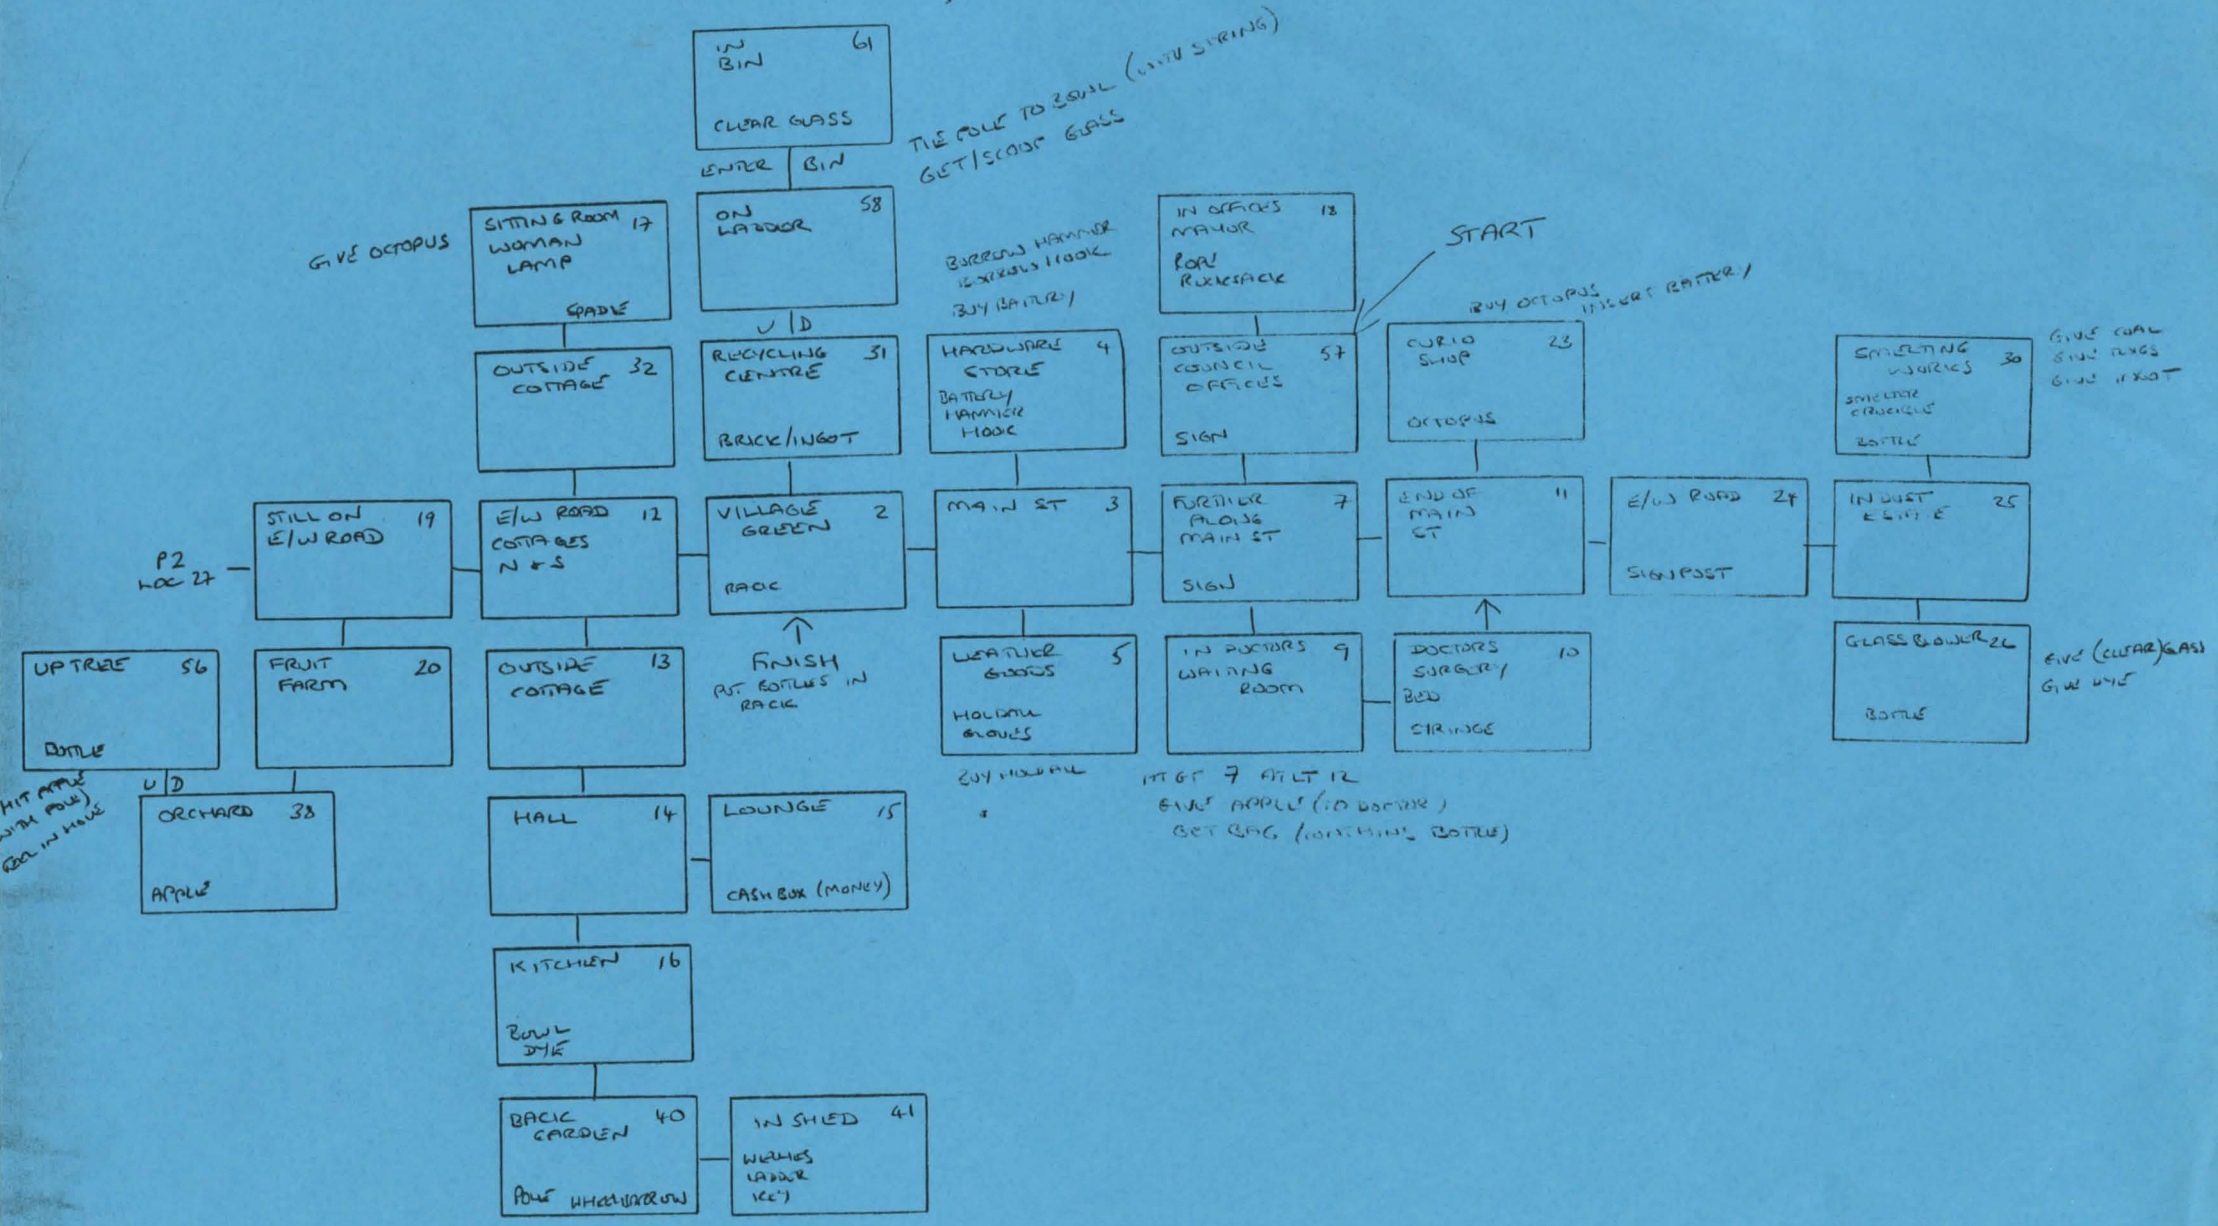 IN 61
BIN
CLEAR GLASS
ENTER BIN
TIE POLE TO BOWL (WITH STRING)
GET/SCOOP GLASS
GIVE OCTOPUS
SITTING ROOM 17
WOMAN
LAMP
SPADE
ON 58
LADDER
U D
BORROW HAMMER
BORROW HOOK
BUY BATTERY
IN OFFICES 18
MAYOR
ROPE
RUCKSACK
START
BUY OCTOPUS
INSERT BATTERY
OUTSIDE 32
COTTAGE
RECYCLING 31
CENTRE
BRICK/INGOT
HARDWARE 4
STORE
BATTERY
HAMMER
HOOK
OUTSIDE 57
COUNCIL
OFFICES
SIGN
CURIO 23
SHOP
OCTOPUS
SMELTING 30
WORKS
SMELTER
CRUCIBLE
BOTTLE
GIVE COAL
GIVE RUGS
GIVE INGOT
P2
LOC 27
STILL ON 19
E/W ROAD
E/W ROAD 12
COTTAGES
N & S
VILLAGE 2
GREEN
RACK
MAIN ST 3
FURTHER 7
ALONG
MAIN ST
SIGN
END OF 11
MAIN
ST
E/W ROAD 24
SIGNPOST
INDUST 25
ESTATE
UP TREE 56
BOTTLE
HIT APPLE
WITH POLE)
FEEL IN HOLE
U D
FRUIT 20
FARM
OUTSIDE 13
COTTAGE
FINISH
PUT BOTTLES IN
RACK
LEATHER 5
GOODS
HOLDALL
GLOVES
BUY HOLDALL
IN DOCTORS 9
WAITING
ROOM
DOCTORS 10
SURGERY
BED
SYRINGE
GLASSBLOWER 26
BOTTLE
GIVE (CLEAR) GLASS
GIVE DYE
AT GT 7 AT LT 12
GIVE APPLE (TO DOCTOR)
GET BAG (CONTAINING BOTTLE)
ORCHARD 38
APPLE
HALL 14
LOUNGE 15
CASHBOX (MONEY)
KITCHEN 16
BOWL
DYE
BACK 40
GARDEN
POLE WHEELBARROW
IN SHED 41
WELLIES
LADDER
KEY